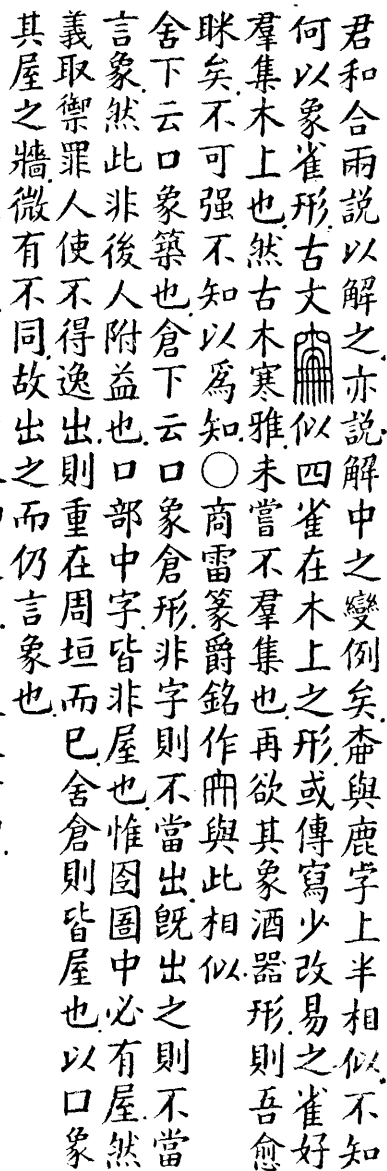 君和合兩説以解之亦説解中之變例矣𣡌與鹿字上半相似不知
何以象雀形古文似四雀在木上之形或傳寫少改易之雀好
羣集木上也然古木寒雅未嘗不羣集也再欲其象酒器形則吾愈
眯矣不可强不知以爲知○商雷篆爵銘作與此相似
舍下云口象築也倉下云口象倉形非字則不當出旣出之則不當
言象然此非後人附益也口部中字皆非屋也惟囹圄中必有屋然
義取禦罪人使不得逸出則重在周垣而已舍倉則皆屋也以口象
其屋之牆微有不同故出之而仍言象也